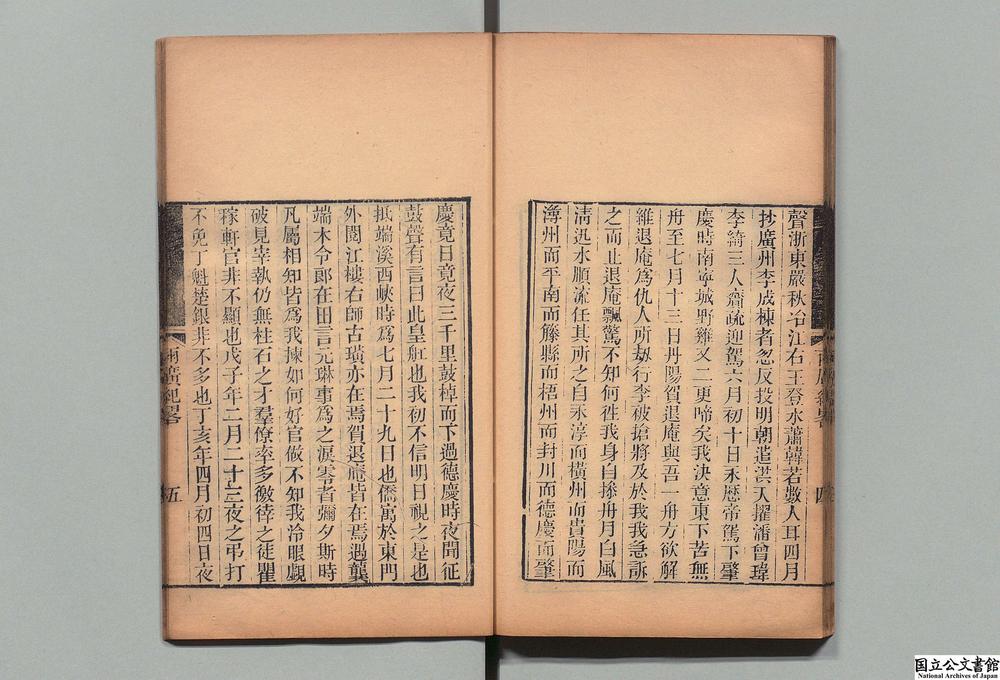 聲浙東嚴秋冶江右王登水蕭韓若數人耳四月
抄廣州李成棟者忽反投明朝遣洪天擢潘曾瑋
李綺三人齎疏迎駕六月初十日永曆帝駕下肇
慶時南寧城野雞又二更啼矣我決意東下苦無
舟至七月十三日丹陽賀退庵與吾一舟方欲解
維退庵為仇人所劫行李被搶將及於我我急訴
之而止退庵飄驚不知何徃我身自㨒舟月白風
清迅水順流任其所之自永淳而橫州而貴陽而
潯州而平南而籐縣而梧州而封川而德慶而肇
兩廣紀畧
四
慶竟日竟夜三千里鼓棹而下過德慶時夜聞征
鼓聲有言曰此皇舡也我初不信明日視之是也
抵端溪西峽時為七月二十九日也僑寓於東門
外閱江樓右師古璜亦在焉賀退庵皆在焉遇龔
端木令郎在田言元琳事為之淚零者彌夕斯時
凡屬相知皆為我揀如何好官做不知我泠眼覷
破見宰執仍無柱石之才羣僚率多徼倖之徒瞿
稼軒官非不顯也戊子年二月二十三夜之弔打
不免丁魁楚銀非不多也丁亥年四月初四日夜
兩廣紀畧
五
国立公文書館
National Archives of Japan